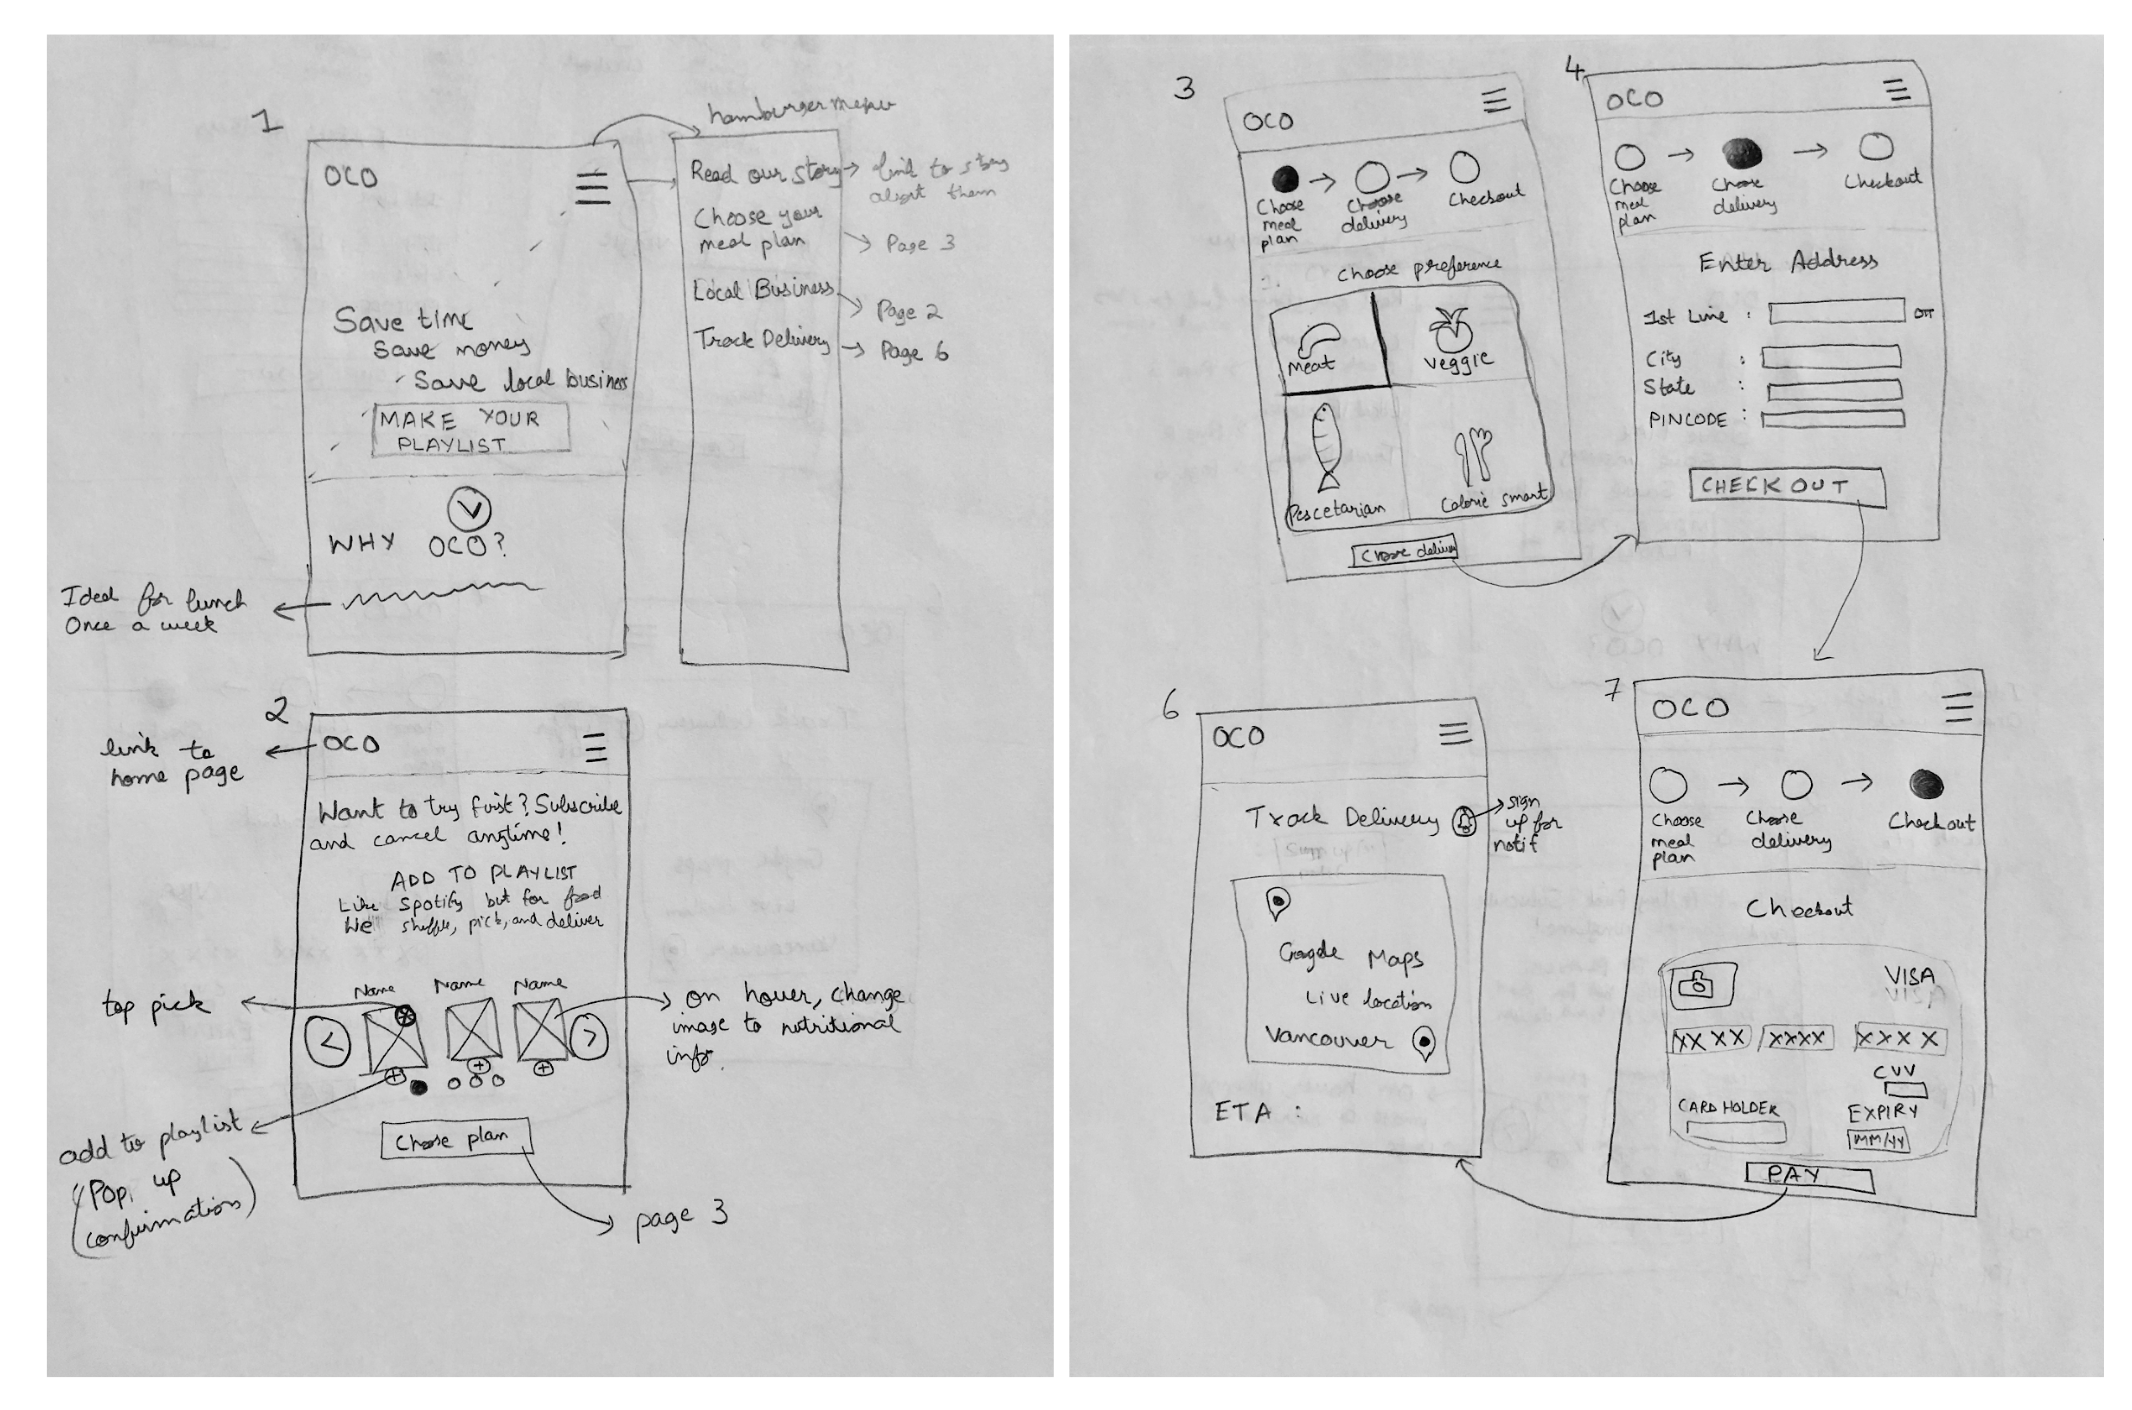 1
hamburger menu
OCO
Save time
Save money
Save local business
MAKE YOUR
PLAYLIST
WHY OCO?
Ideal for lunch
Once a week
Read our story → link to story
about them
Choose your
meal plan → Page 3
Local Business → Page 2
Track Delivery → Page 6
2
link to
home page
OCO
Want to try first? Subscribe
and cancel anytime!
ADD TO PLAYLIST
Like Spotify but for food
We shuffle, pick, and deliver
top pick
Name Name Name
< >
on hover, change
image to nutritional
info.
add to playlist
(Pop up
confirmation)
Choose plan
page 3
3
OCO
Choose
meal
plan
→
Choose
delivery
→
Checkout
Choose preference
Meat
Veggie
Pescetarian
Calorie smart
Choose delivery
4
OCO
Choose
meal
plan
→
Choose
delivery
→
Checkout
Enter Address
1st Line :
City :
State :
PINCODE :
CHECK OUT
6
OCO
Track Delivery
sign
up for
notif
Google Maps
Live location
Vancouver
ETA :
7
OCO
Choose
meal
plan
→
Choose
delivery
→
Checkout
Checkout
VISA
XXXX XXXX XXXX
CVV
CARD HOLDER
EXPIRY
MM/YY
PAY